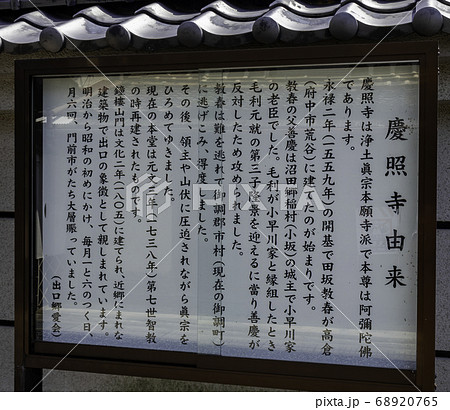 慶照寺由来
慶照寺は浄土真宗本願寺派で本尊は阿彌陀佛
であります。
永禄二年(一五五九年)の開基で田坂教春が高倉
(府中市荒谷)に建てたのが始まりです。
教春の父善慶は沼田郷稲村(小坂)の城主で小早川家
の老臣でした。毛利が小早川家と縁組したとき
毛利元就の第三子隆景を迎えるに當り善慶が
反対したため攻められました。
教春は難を逃れて御調郡市村(現在の御調町)
に逃げこみ、得度しました。
その後、領主や山伏に圧迫されながら眞宗を
ひろめてゆきました。
現在の本堂は元文三年(一七三八年)第七世智教
の時再建されたものです。
鐘楼山門は文化二年(一八〇五)に建てられ、近郷にまれな
建築物で出口の象徴として親しまれています。
明治から昭和の初めにかけ、毎月一と六のつく日、
月六回、門前市がたち大層賑っていました。
(出口郷愛会)
PIXTA
pixta.jp - 68920765